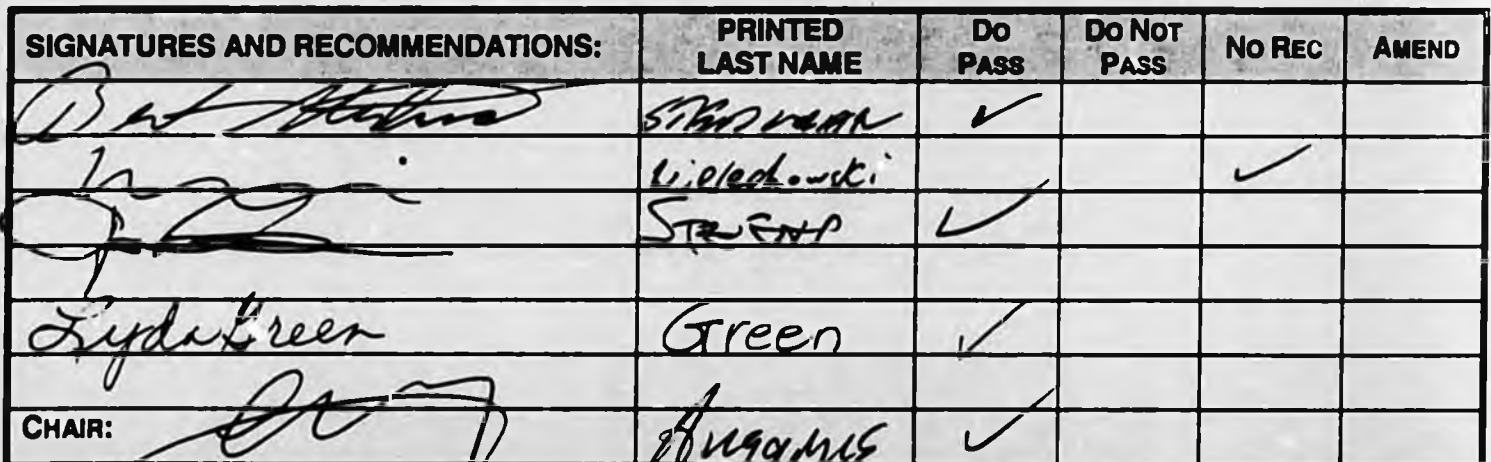 SIGNATURES AND RECOMMENDATIONS: PRINTED LAST NAME DO PASS DO NOT PASS NO REC AMEND
Bert Stedman STEDMAN ✓
Wielechowski ✓
STEVENS ✓
Lyda Green Green ✓
CHAIR: Huggins ✓